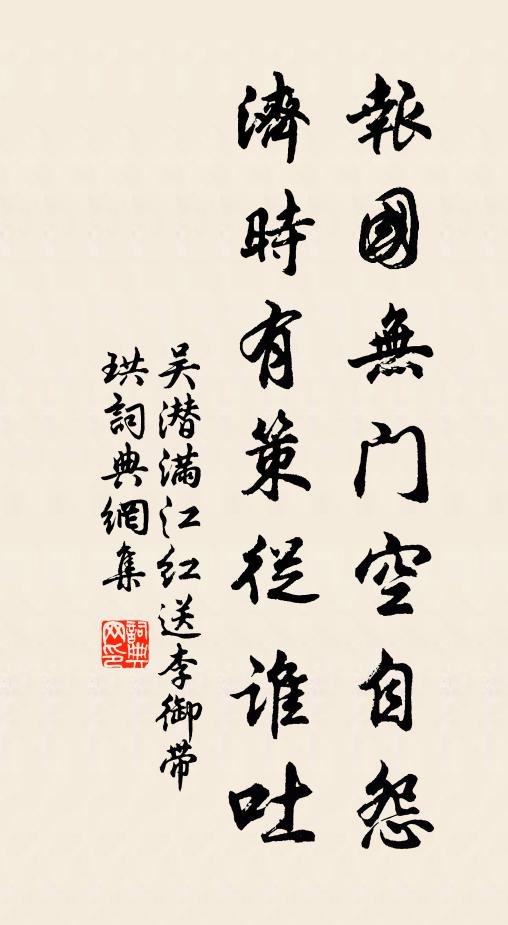 報國無门空自怨
濟時有策從誰吐
吴潜满江红送李御带
珙詞典網集
詞典网印